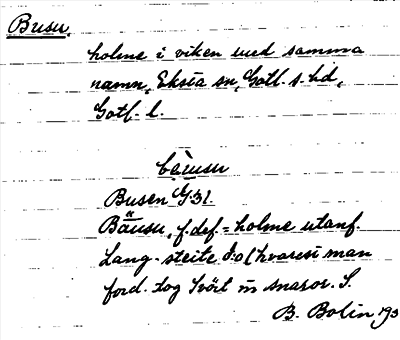 Busu,
holme i viken med samma
namn, Eksta sn, Gotl. s. hd,
Gotl. l.
bä̀usu
Busen G. 31.
Bäusu, f. def. = holme utanf.
Lang-steite d:o (hvarest man
ford. tog svört m snaror. S.
B. Bolin 193